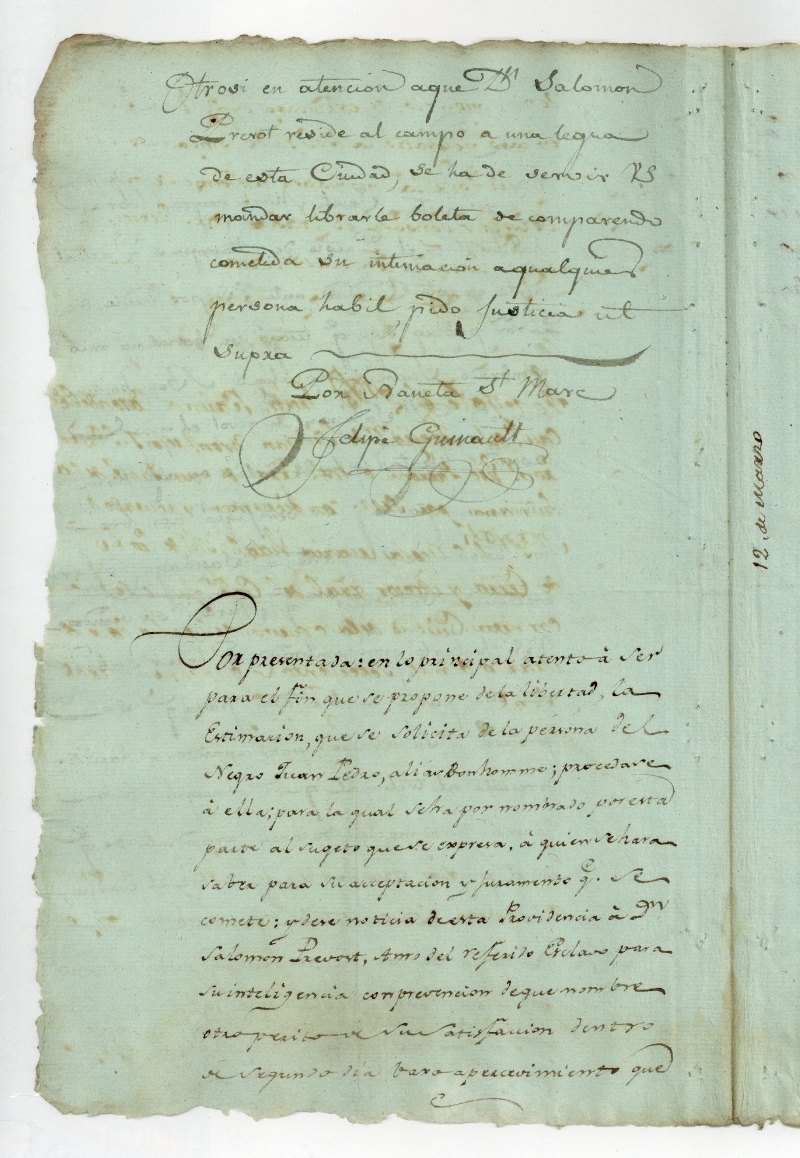 Otrosi en atencion aque Dn Salomon
Prevot reside al campo a una legua
de esta Ciudad, se ha de servir VS
mandar librarle boleta de comparendo
cometida su intimacion aqualquiera
persona habil, pido Justicia ut
supra
Por Naneta St Marc
Felipe Guinault
Por presentada: en lo principal atento à ser
para el fin que se propone de la libertad, la
Estimacion, que se solicita de la persona del
Negro Juan Pedro, alias Bonhomme; procedase
à ella; para la qual seha por nombrado por esta
parte al sugeto que se expresa, à quien sehara
saber para su acceptacion y Juramento qe. se
comete; y dese noticia de esta Providencia à Dn
Salomon Prevost, Amo del referido Esclavo para
su inteligencia con prevencion de que nombre
otro perito de su satisfaccion dentro
de segundo dia baxo apercevimiento que
12,, de Marzo